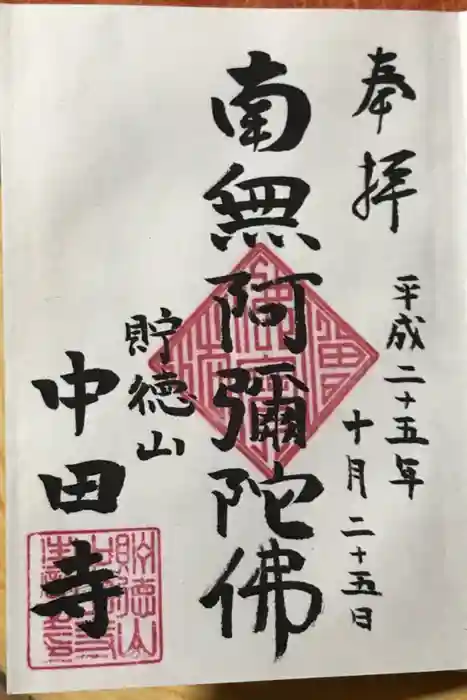 奉拝
平成二十五年
十月二十五日
南無阿彌陀佛
貯徳山
中田寺